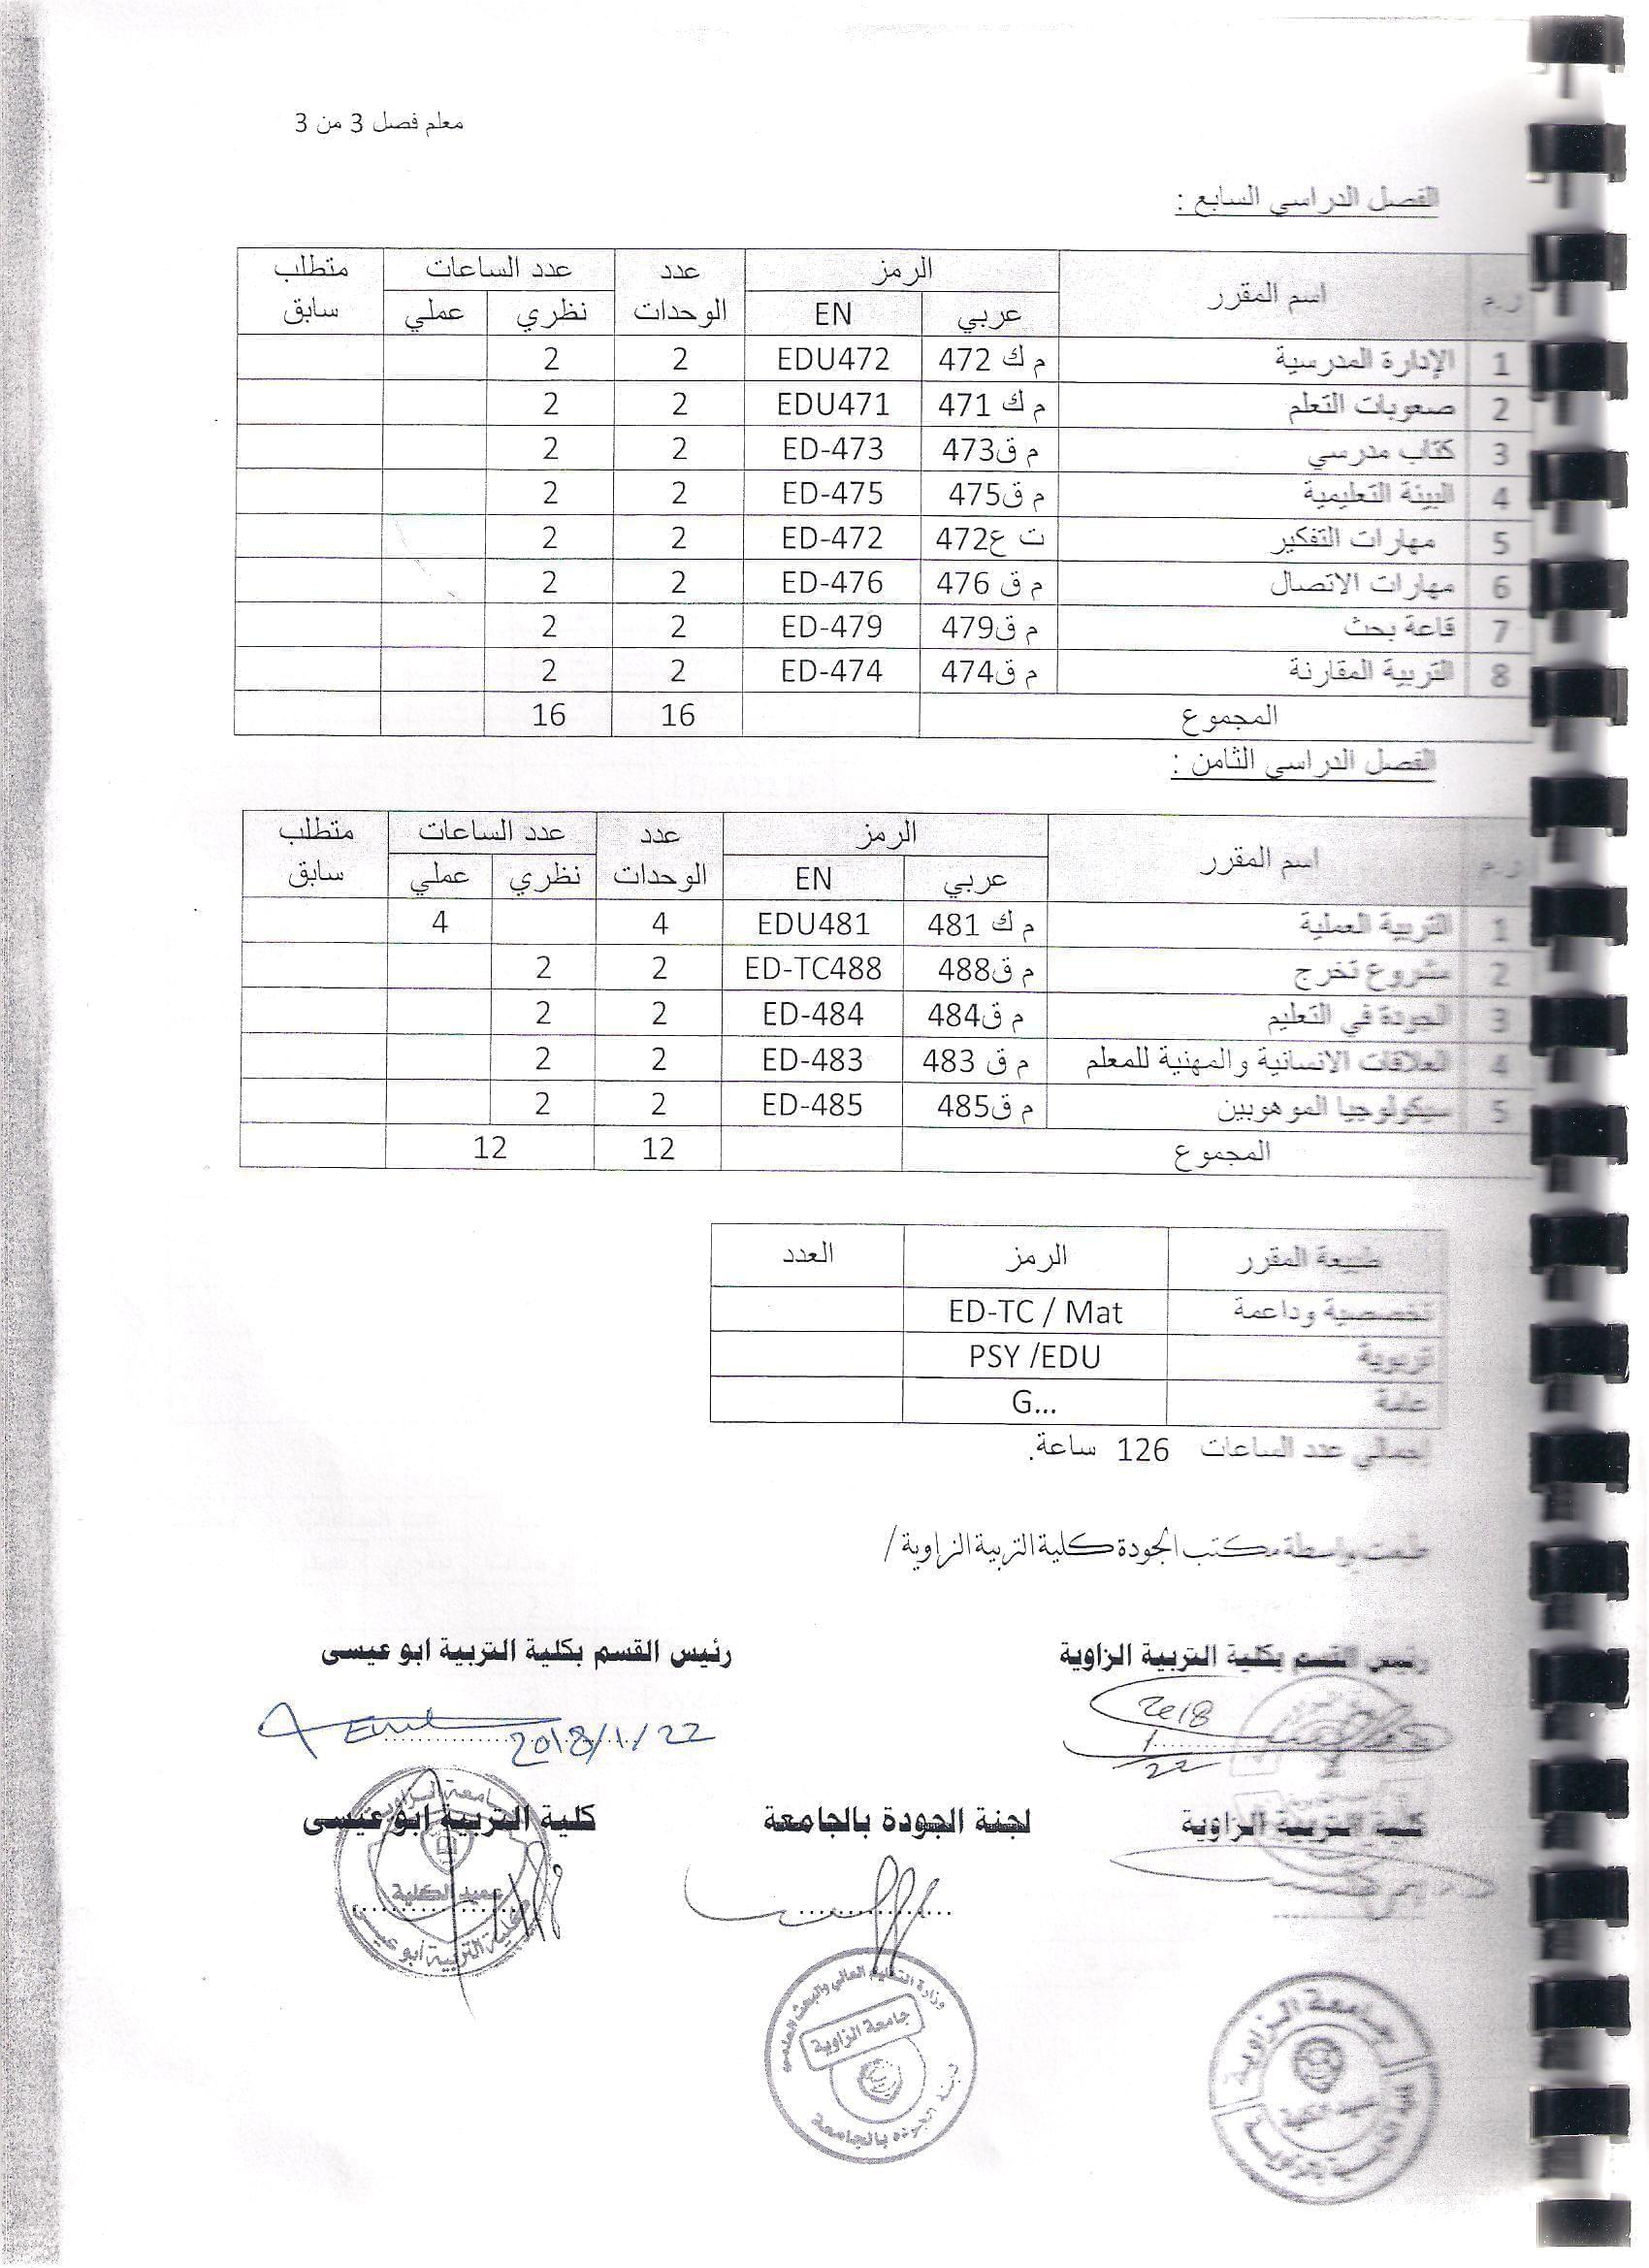 معلم فصل 3 من 3
الفصل الدراسي السابع :
ر.م | اسم المقرر | الرمز | عدد الوحدات | عدد الساعات | متطلب سابق
عربي | EN | نظري | عملي
1 | الإدارة المدرسية | م ك 472 | EDU472 | 2 | 2
2 | صعوبات التعلم | م ك 471 | EDU471 | 2 | 2
3 | كتاب مدرسي | م ق473 | ED-473 | 2 | 2
4 | البيئة التعليمية | م ق475 | ED-475 | 2 | 2
5 | مهارات التفكير | ت ع472 | ED-472 | 2 | 2
6 | مهارات الاتصال | م ق 476 | ED-476 | 2 | 2
7 | قاعة بحث | م ق479 | ED-479 | 2 | 2
8 | التربية المقارنة | م ق474 | ED-474 | 2 | 2
المجموع | 16 | 16
الفصل الدراسي الثامن :
ر.م | اسم المقرر | الرمز | عدد الوحدات | عدد الساعات | متطلب سابق
عربي | EN | نظري | عملي
1 | التربية العملية | م ك 481 | EDU481 | 4 | 4
2 | مشروع تخرج | م ق488 | ED-TC488 | 2 | 2
3 | الجودة في التعليم | م ق484 | ED-484 | 2 | 2
4 | العلاقات الانسانية والمهنية للمعلم | م ق 483 | ED-483 | 2 | 2
5 | سيكولوجيا الموهوبين | م ق485 | ED-485 | 2 | 2
المجموع | 12 | 12
طبيعة المقرر | الرمز | العدد
تخصصية وداعمة | ED-TC / Mat
تربوية | PSY /EDU
عامة | G...
إجمالي عدد الساعات 126 ساعة.
طبعت بواسطة مكتب الجودة كلية التربية الزاوية /
رئيس القسم بكلية التربية الزاوية رئيس القسم بكلية التربية ابو عيسى
2018/1/22 2018/1/22
كلية التربية الزاوية لجنة الجودة بالجامعة كلية التربية ابو عيسى
جامعة الزاوية
عميد الكلية
كلية التربية أبو عيسى
وزارة التعليم العالي والبحث العلمي
جامعة الزاوية
لجنة الجودة بالجامعة
جامعة الزاوية